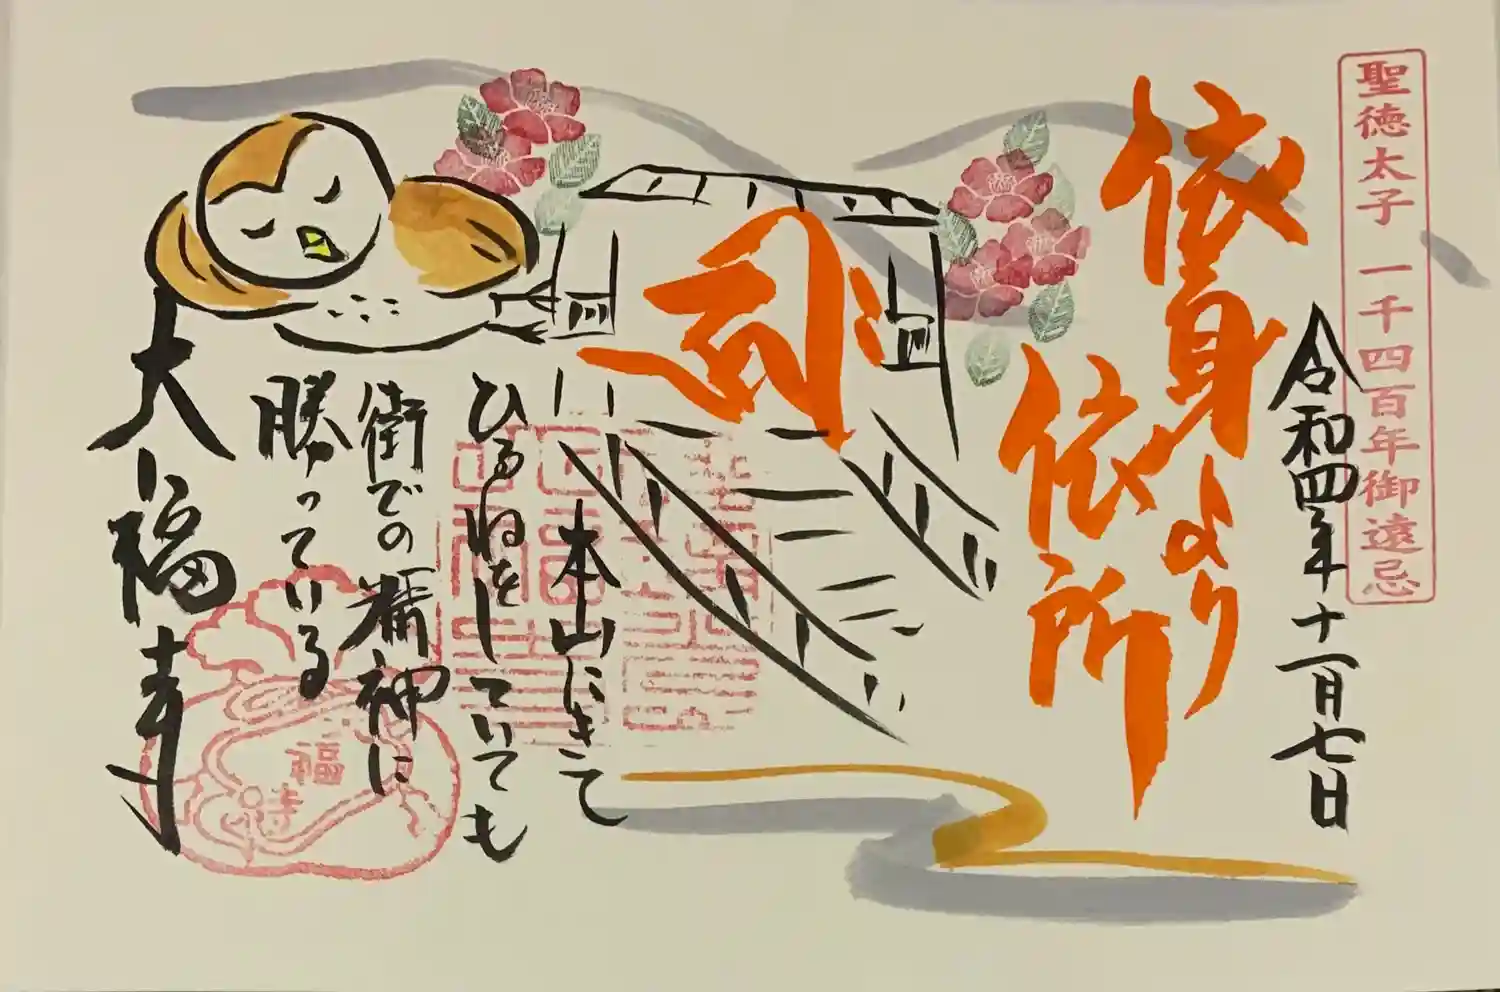 聖徳太子 一千四百年御遠忌
令和四年十一月七日
依身より
依所
本山にきて
ひるねをしていても
街での精神に
勝っている
大福寺
福寺